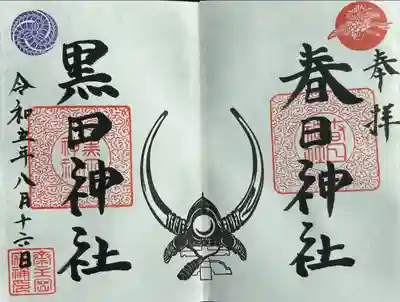 奉拝
春日神社
黒田神社
令和五年八月十六日